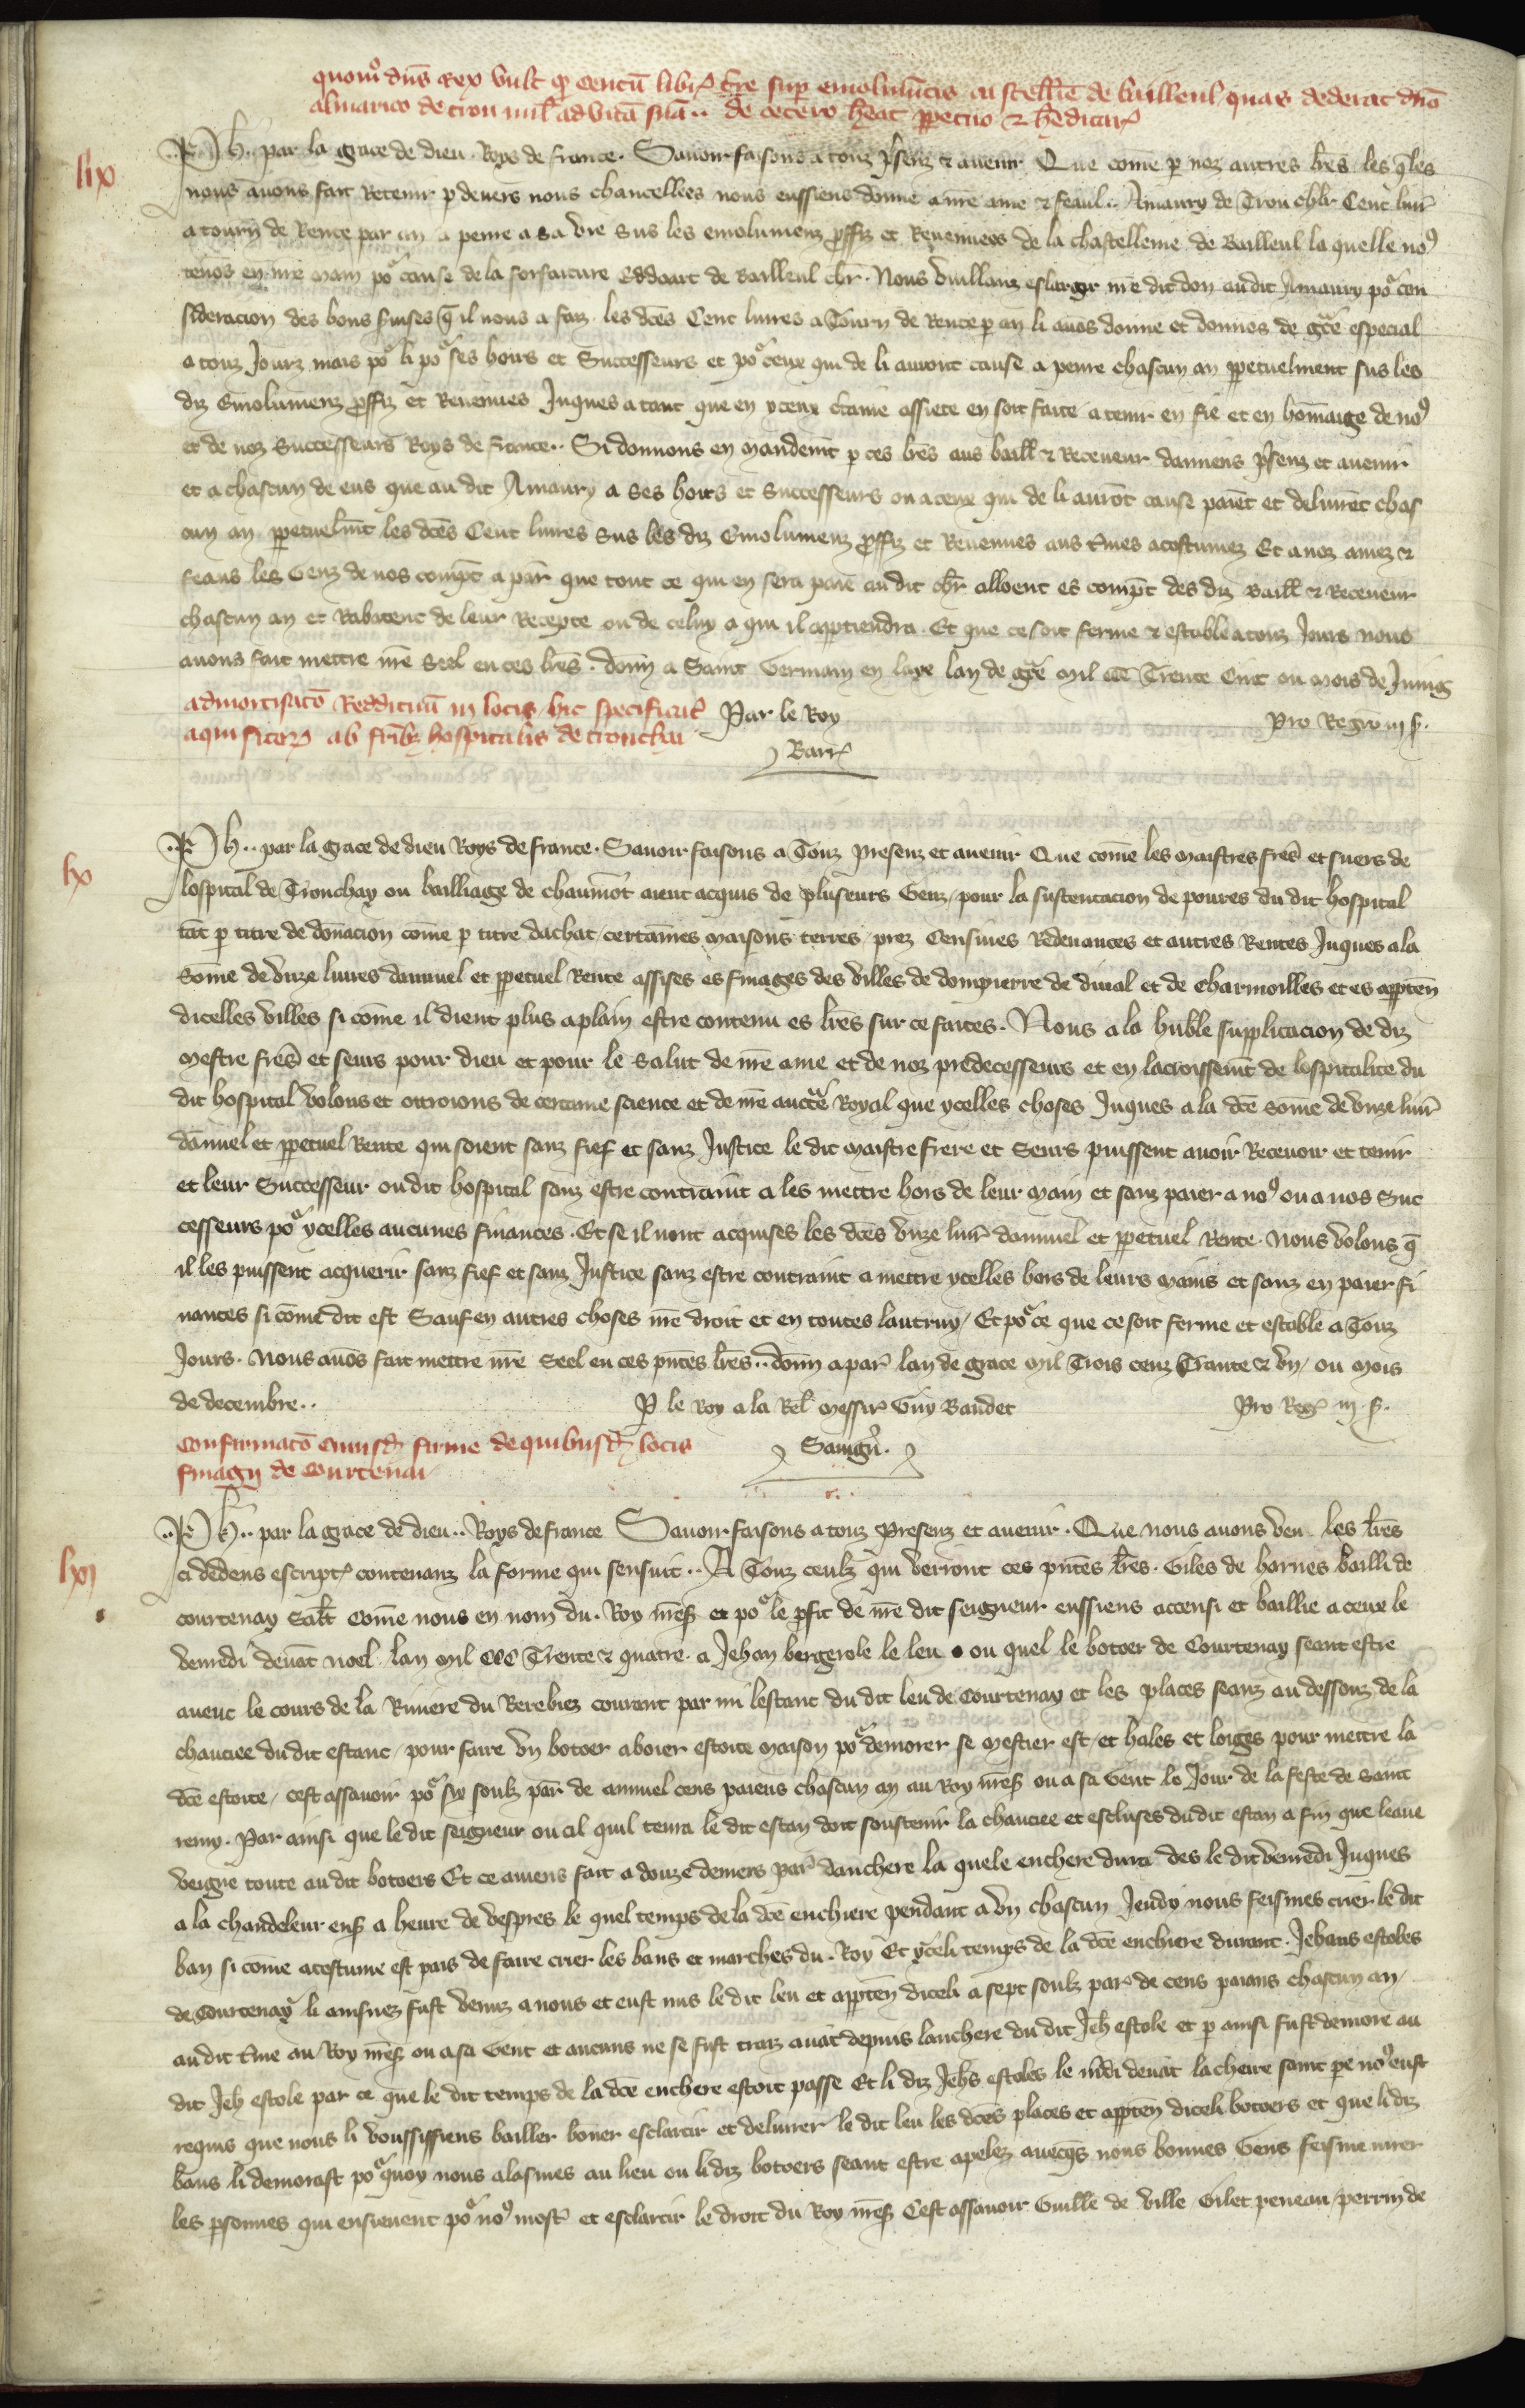 quomo dns Rex vult qp centu libr terre sup emolumtis castellie de bailleul quas dederat dno
almarico de trou mil ad vita sua .. de cetero heat ppetuo & heditar
lix
Ph .. par la grace de dieu Roys de france. Savoir faisons a touz psenz & avenir Que come p noz autres lres les qles
nous avons fait Retenir p devers nous chancellees nous eussiens donne a nre ame & feaul .. Amaury de Trou chlr Cent livr
a tourn de Rente par an a penre a sa vie sus les emolumenz proffiz et Revenuees de la chastellenie de Bailleul la quelle nous
tenos en nre main por cause de la forfaiture Eddoart de Bailleul chr. Nous vuillanz eslargir nre dit don audit Amaury por con
sideracion des bons svises q il nous a faiz les dces Cent livres a Tourn de Rente p an li avos donne et donnos de gce especial
a touz Jourz mais por li por ses hoirs et Successeurs et por ceux qui de li auront cause a penre chascun an ppetuelment sus les
diz Emolumenz proffiz et Revenues Juques a tant que en yceux ctaine assiete en soit faite a tenir en fie et en homaige de nous
et de noz Successeurs Roys de france .. Si donnons en mandemt p ces lres aus baill & Receveur damiens psenz et avenir
et a chascun de eus que au dit Amaury a ses hoirs et Successeurs ou a ceux qui de li auront cause paient et delivret chas
cun an ppetuelmt les dces Cent livres sus les diz Emolumenz proffiz et Revenues aus tmes acostumez Et a noz amez &
feaus les Genz de nos compt a par que tout ce qui en sera paie au dit chr alloent es compt des diz Baill & Receveur
chascun an et Rabatent de leur Recepte ou de celuy a qui il apptiendra. Et que ce soit ferme & estable a touz Jours nous
avons fait mettre nre Seel en ces lres. donn a Saint Germain en laye lan de gce mil ccc Trente Cinc ou mois de Juing
admortisato Reddituu in locis hic specificat
aquisitor ab frib hospitalis de tronchai
Par le Roy
Barr
pro Rege iii s.
lx
Ph .. par la grace de dieu Roys de france. Savoir faisons a Touz presenz et avenir Que come les maistres fres et suers de
lospital de Tronchay ou bailliage de chaumot aient acquis de pluseurs Genz / pour la sustentacion de poures du dit hospital
tat p titre de donacion come p titre dachat / certaines maisons terres / prez Censives Redevances et autres Rentes Juques a la
Some de unze livres dannuel et ppetuel Rente assises es finages des villes de dompierre de dinal et de Charmoilles et es appten
dicelles villes si come il dient plus aplain estre contenu es lres sur ce faites. Nous a la huble supplicacion de diz
mestre fres et seurs pour dieu et pour le Salut de nre ame et de noz predecesseurs et en lacroissemt de lospitalite du
dit hospital volons et ottroions de certaine science et de nre aucte Royal que ycelles choses Juques a la dce some de unze livr
dannuel et ppetuel Rente qui soient sanz fief et sanz Justice le dit maistre frere et Seurs puissent avoir Recevoir et tenir
et leur Successeur ou dit hospital sanz estre contraint a les mettre hors de leur main et sanz paier a nous ou a nos Suc
cesseurs por ycelles aucunes finances. Et se il nont acquises les dces unze livr dannuel et ppetuel Rente. Nous volons q
il les puissent acquerir sanz fief et sanz Justice sanz estre contraint a mettre ycelles hors de leurs mains et sanz en paier fi
nances si come dit est Sauf en autres choses nre droit et en toutes lautruy / Et por ce que ce soit ferme et estable a Touz
Jours. Nous avos fait mettre nre Seel en ces pntes lres .. donn a par lan de grace mil Trois cenz Trante & un / ou mois
de decembre ..
P le Roy a la Rel messir Guy Baudet
Pro Reg iii s.
Confirmato cuiusd firme de quibusd locis
finagii de Courtenai
Savign.
lxi
Ph .. par la grace de dieu .. Roys de france Savoir faisons a touz presenz et avenir. Que nous avons veu les lres
ci dedens escript contenanz la forme qui sensuit .. A Touz ceulz qui verront ces pntes lres. Giles de harnes bailli de
courtenay Salt Come nous en nom du Roy nres et por le pfit de nre dit seigneur eussiens accensi et baillie a ceux le
vemedi devat noel lan mil ccc Trente & quatre a Jehan bergerole le leu ou quel le botoer de Courtenay seant estre
avent le cours de la Riviere du Berebiez courant par mi lestanc du dit leu de Courtenay et les places seanz au dessouz de la
chauciee du dit estanc / pour faire un botoer aboier estoite maison por demorer se mestier est / et hales et loiges pour mettre la
dce estoite / cest assavoir por six soulz par de annuel cens paiens chascun an au Roy nres ou a sa Gent le Jour de la feste de Saint
remy. Par ainsi que le dit seigneur ou cil quil tenra le dit estan doit soustenir la chauciee et escluses du dit estan a fin que leaue
veigne toute au dit botoers Et ce aviens fait a douze deniers par danchere la quele enchere dura des le dit vemedi Juques
a la chandeleur ens a heure de vespres le quel temps de la dce enchiere pendant a un chascun Jeudy nous feismes crier le dit
ban si come acostume est pais de faire crier les bans et marches du Roy Et yceli temps de la dce enchiere durant. Jehans estoles
de Courtenay li ainsnez fust venuz a nous et eust mis le dit leu et appten diceli a sept soulz par de cens paians chascun an /
au dit tme au Roy nres ou a sa Gent et aucuns ne se fust traiz avat depuis lanchere du dit Jeh estole et p ainsi fust demore au
dit Jeh estole par ce que le dit temps de la dce enchere estoit passe Et li diz Jehs estoles le mdi devat lacheire saint pe nous eust
requis que nous li voussissiens bailler boner esclarcir et delivrer le dit leu les dces places et appten diceli botoers et que li diz
bans li demorast por quoy nous alasmes au lieu ou li diz botoers seant estre apelez avecqs nous bonnes Gens feisme jurer
les psonnes qui ensievent por nous most et esclarcir le droit du Roy nres Cest assavoir Guille de ville Gilet peneau / perrin de